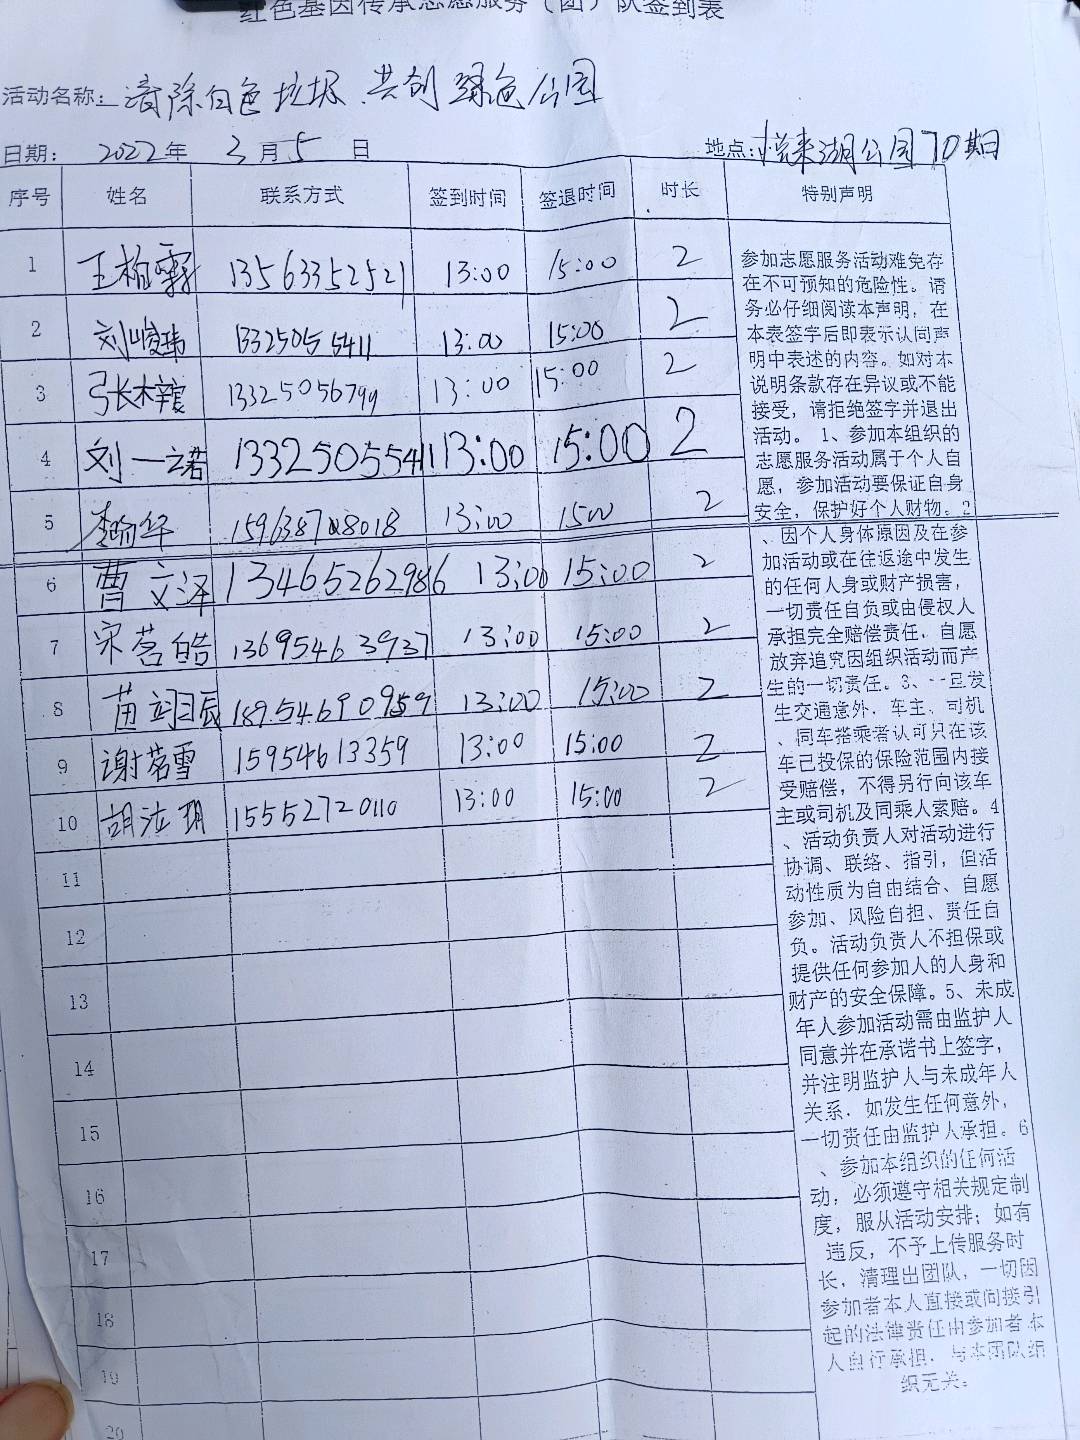 红色基因传承志愿服务（团）队签到表
活动名称：清除白色垃圾、共创绿色公园
日期： 2022年 3月5日 地点：悦来湖公园
序号 姓名 联系方式 签到时间 签退时间 时长 特别声明
1 王柏霖 13563352521 13:00 15:00 2
2 刘峻玮 13325055411 13:00 15:00 2
3 张梓宸 13325056799 13:00 15:00 2
4 刘一诺 13325055411 13:00 15:00 2
5 华 13:00 1500 2
6 曹文泽 13465262986 13:00 15:00 2
7 宋茗皓 13695463937 13:00 15:00 2
8 苗翊辰 18954690959 13:00 15:00 2
9 谢茗雪 15954613359 13:00 15:00 2
10 胡 15552720110 13:00 15:00 2
11
12
13
14
15
16
17
18
19
20
参加志愿服务活动难免存
在不可预知的危险性。请
务必仔细阅读本声明，在
本表签字后即表示认同声
明中表述的内容。如对本
说明条款存在异议或不能
接受，请拒绝签字并退出
活动。 1、参加本组织的
志愿服务活动属于个人自
愿，参加活动要保证自身
安全，保护好个人财物。2
、因个人身体原因及在参
加活动或在往返途中发生
的任何人身或财产损害，
一切责任自负或由侵权人
承担完全赔偿责任．自愿
放弃追究因组织活动而产
生的一切责任。3、一旦发
生交通意外．车主、司机
、同车搭乘者认可只在该
车已投保的保险范围内接
受赔偿，不得另行向该车
主或司机及同乘人索赔。4
、活动负责人对活动进行
协调、联络、指引，但活
动性质为自由结合、自愿
参加、风险自担、责任自
负。活动负责人不担保或
提供任何参加人的人身和
财产的安全保障。5、未成
年人参加活动需由监护人
同意并在承诺书上签字，
并注明监护人与未成年人
关系．如发生任何意外，
一切责任由监护人承担。6
、参加本组织的任何活
动，必须遵守相关规定制
度，服从活动安排；如有
违反，不予上传服务时
长，清理出团队，一切因
参加者本人直接或间接引
起的法律责任由参加者本
人自行承担．与本团队组
织无关。